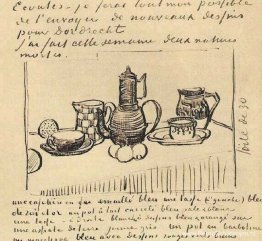 Ecoutes - je ferai tout mon possible
de t'envoyer de nouveaux dessins
pour Dordrecht
J'ai fait cette semaine deux natures
mortes.
toile de 30
une cafetière en fer émaillé bleu une tasse (à gauche) bleu
de roi et or un pot à lait carrelé bleu
une tasse à droite blanche dessins bleus orangé sur
une assiette de terre jaune gris un pot en barbotine
bleu avec dessins rouges verts bruns